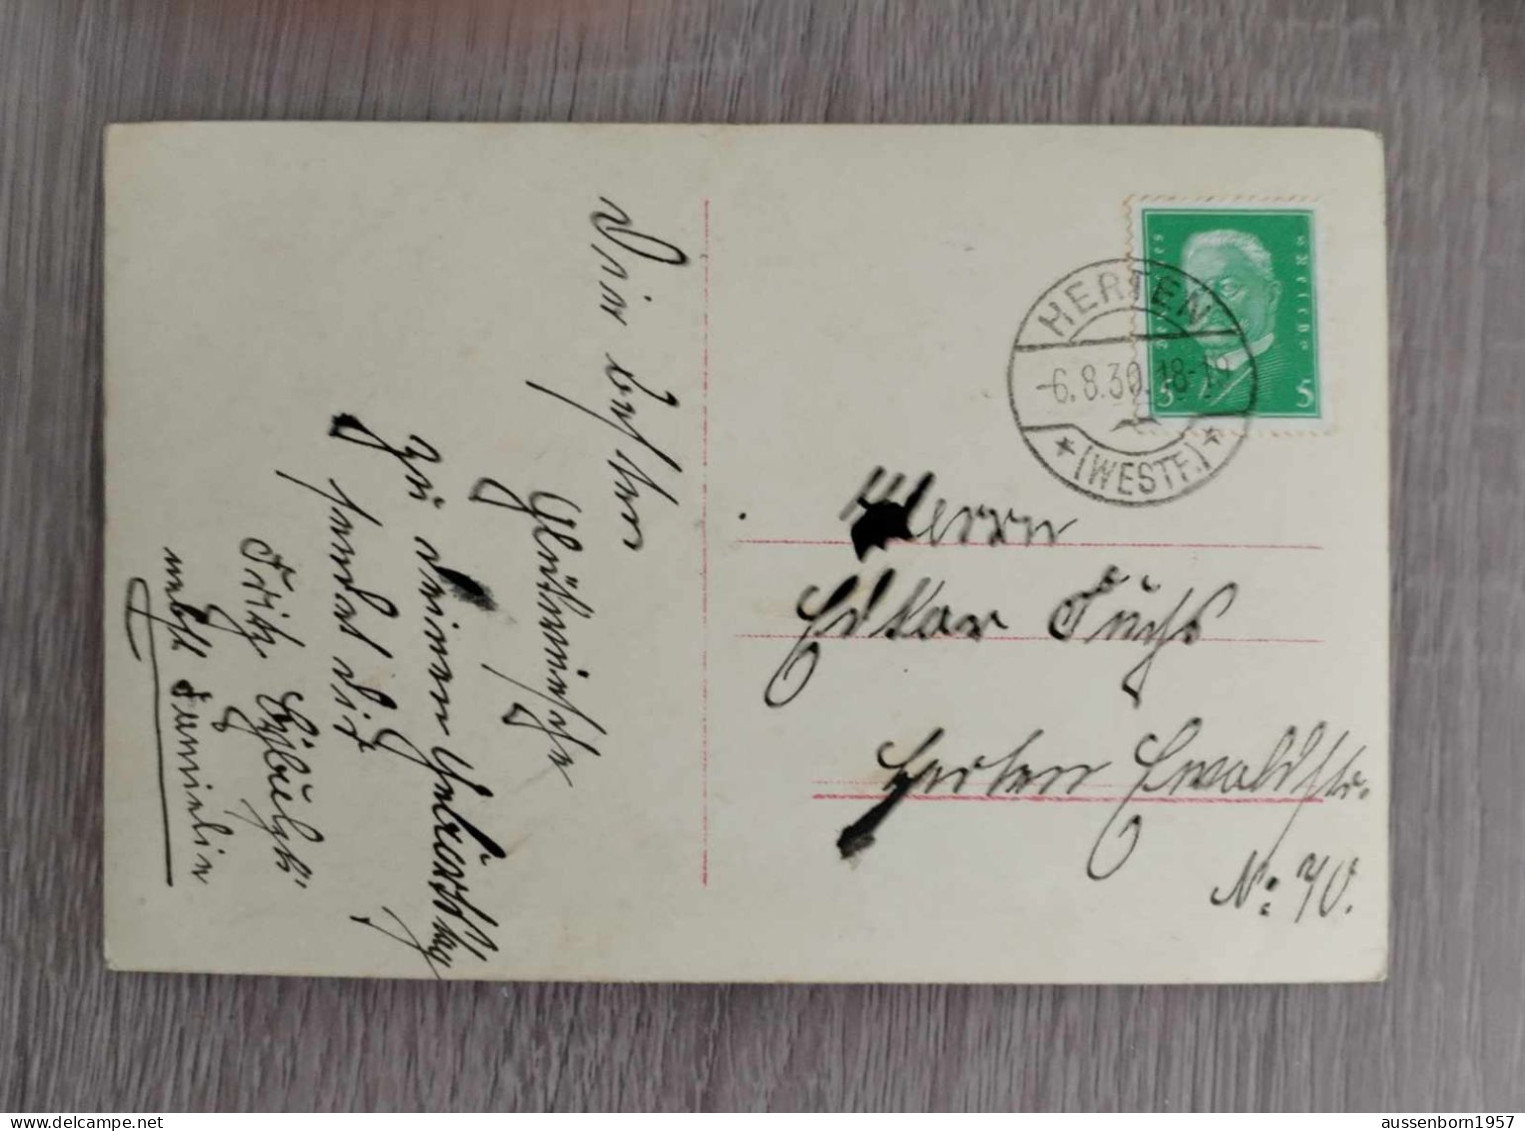 Die besten
Glückwünsche
zu deinem Geburtstag
sendet dir
Fritz
nebst Familie
HERTEN
-6.8.30.18-19
* (WESTF.) *
5 5
Herrn
Edkar Fuchs
Herten Ewaldstr.
No: 70.
aussenborn1957